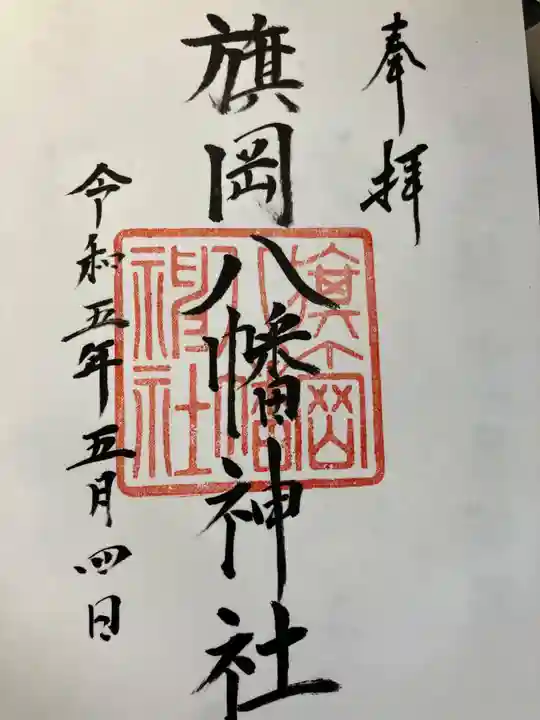 奉拝
旗岡八幡神社
旗岡
八幡
神社
令和五年五月四日